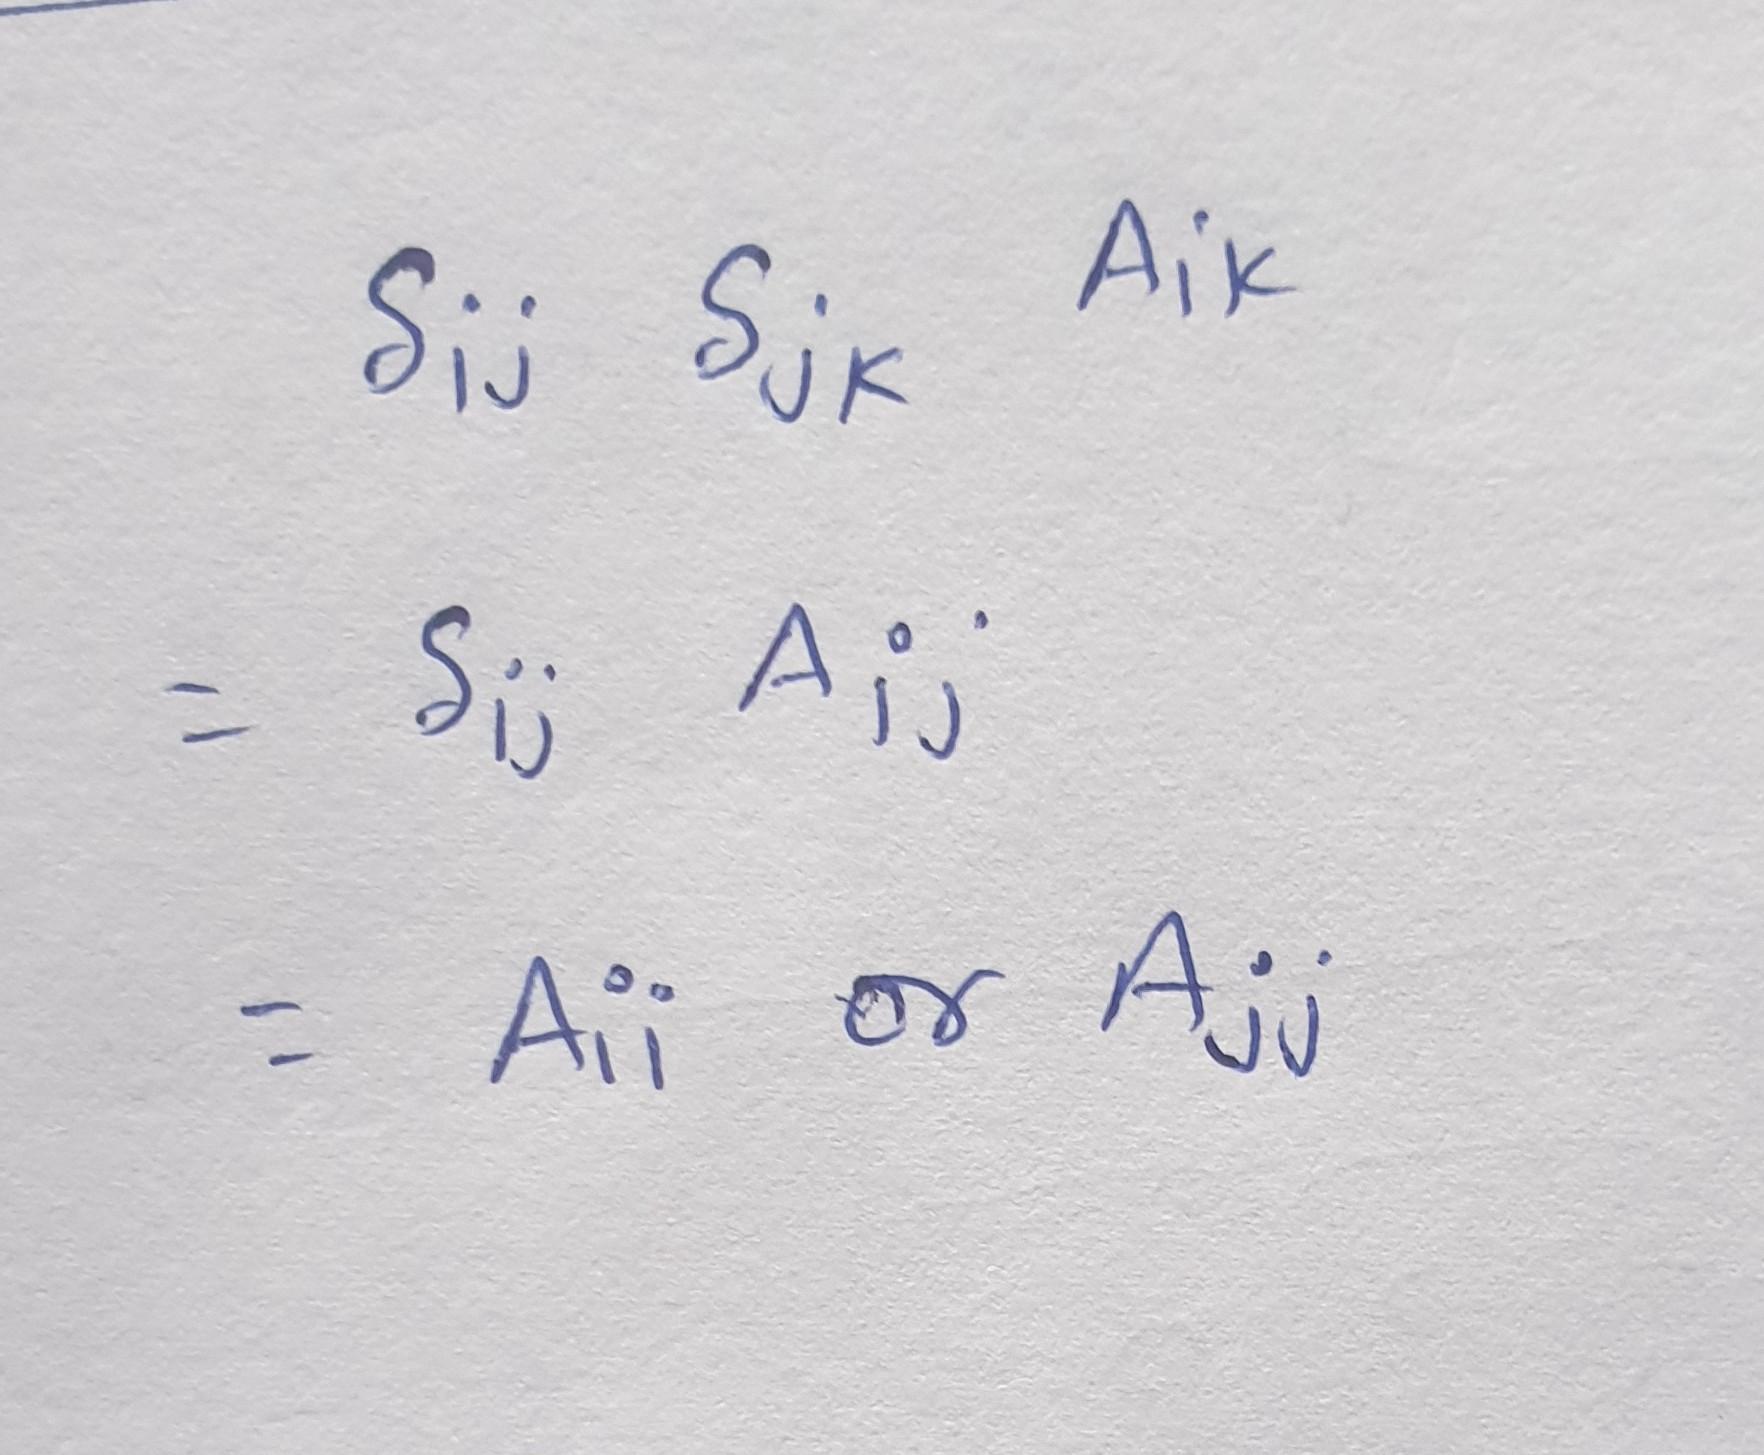 δij δjk Aik
= δij Aij
= Aii or Ajj